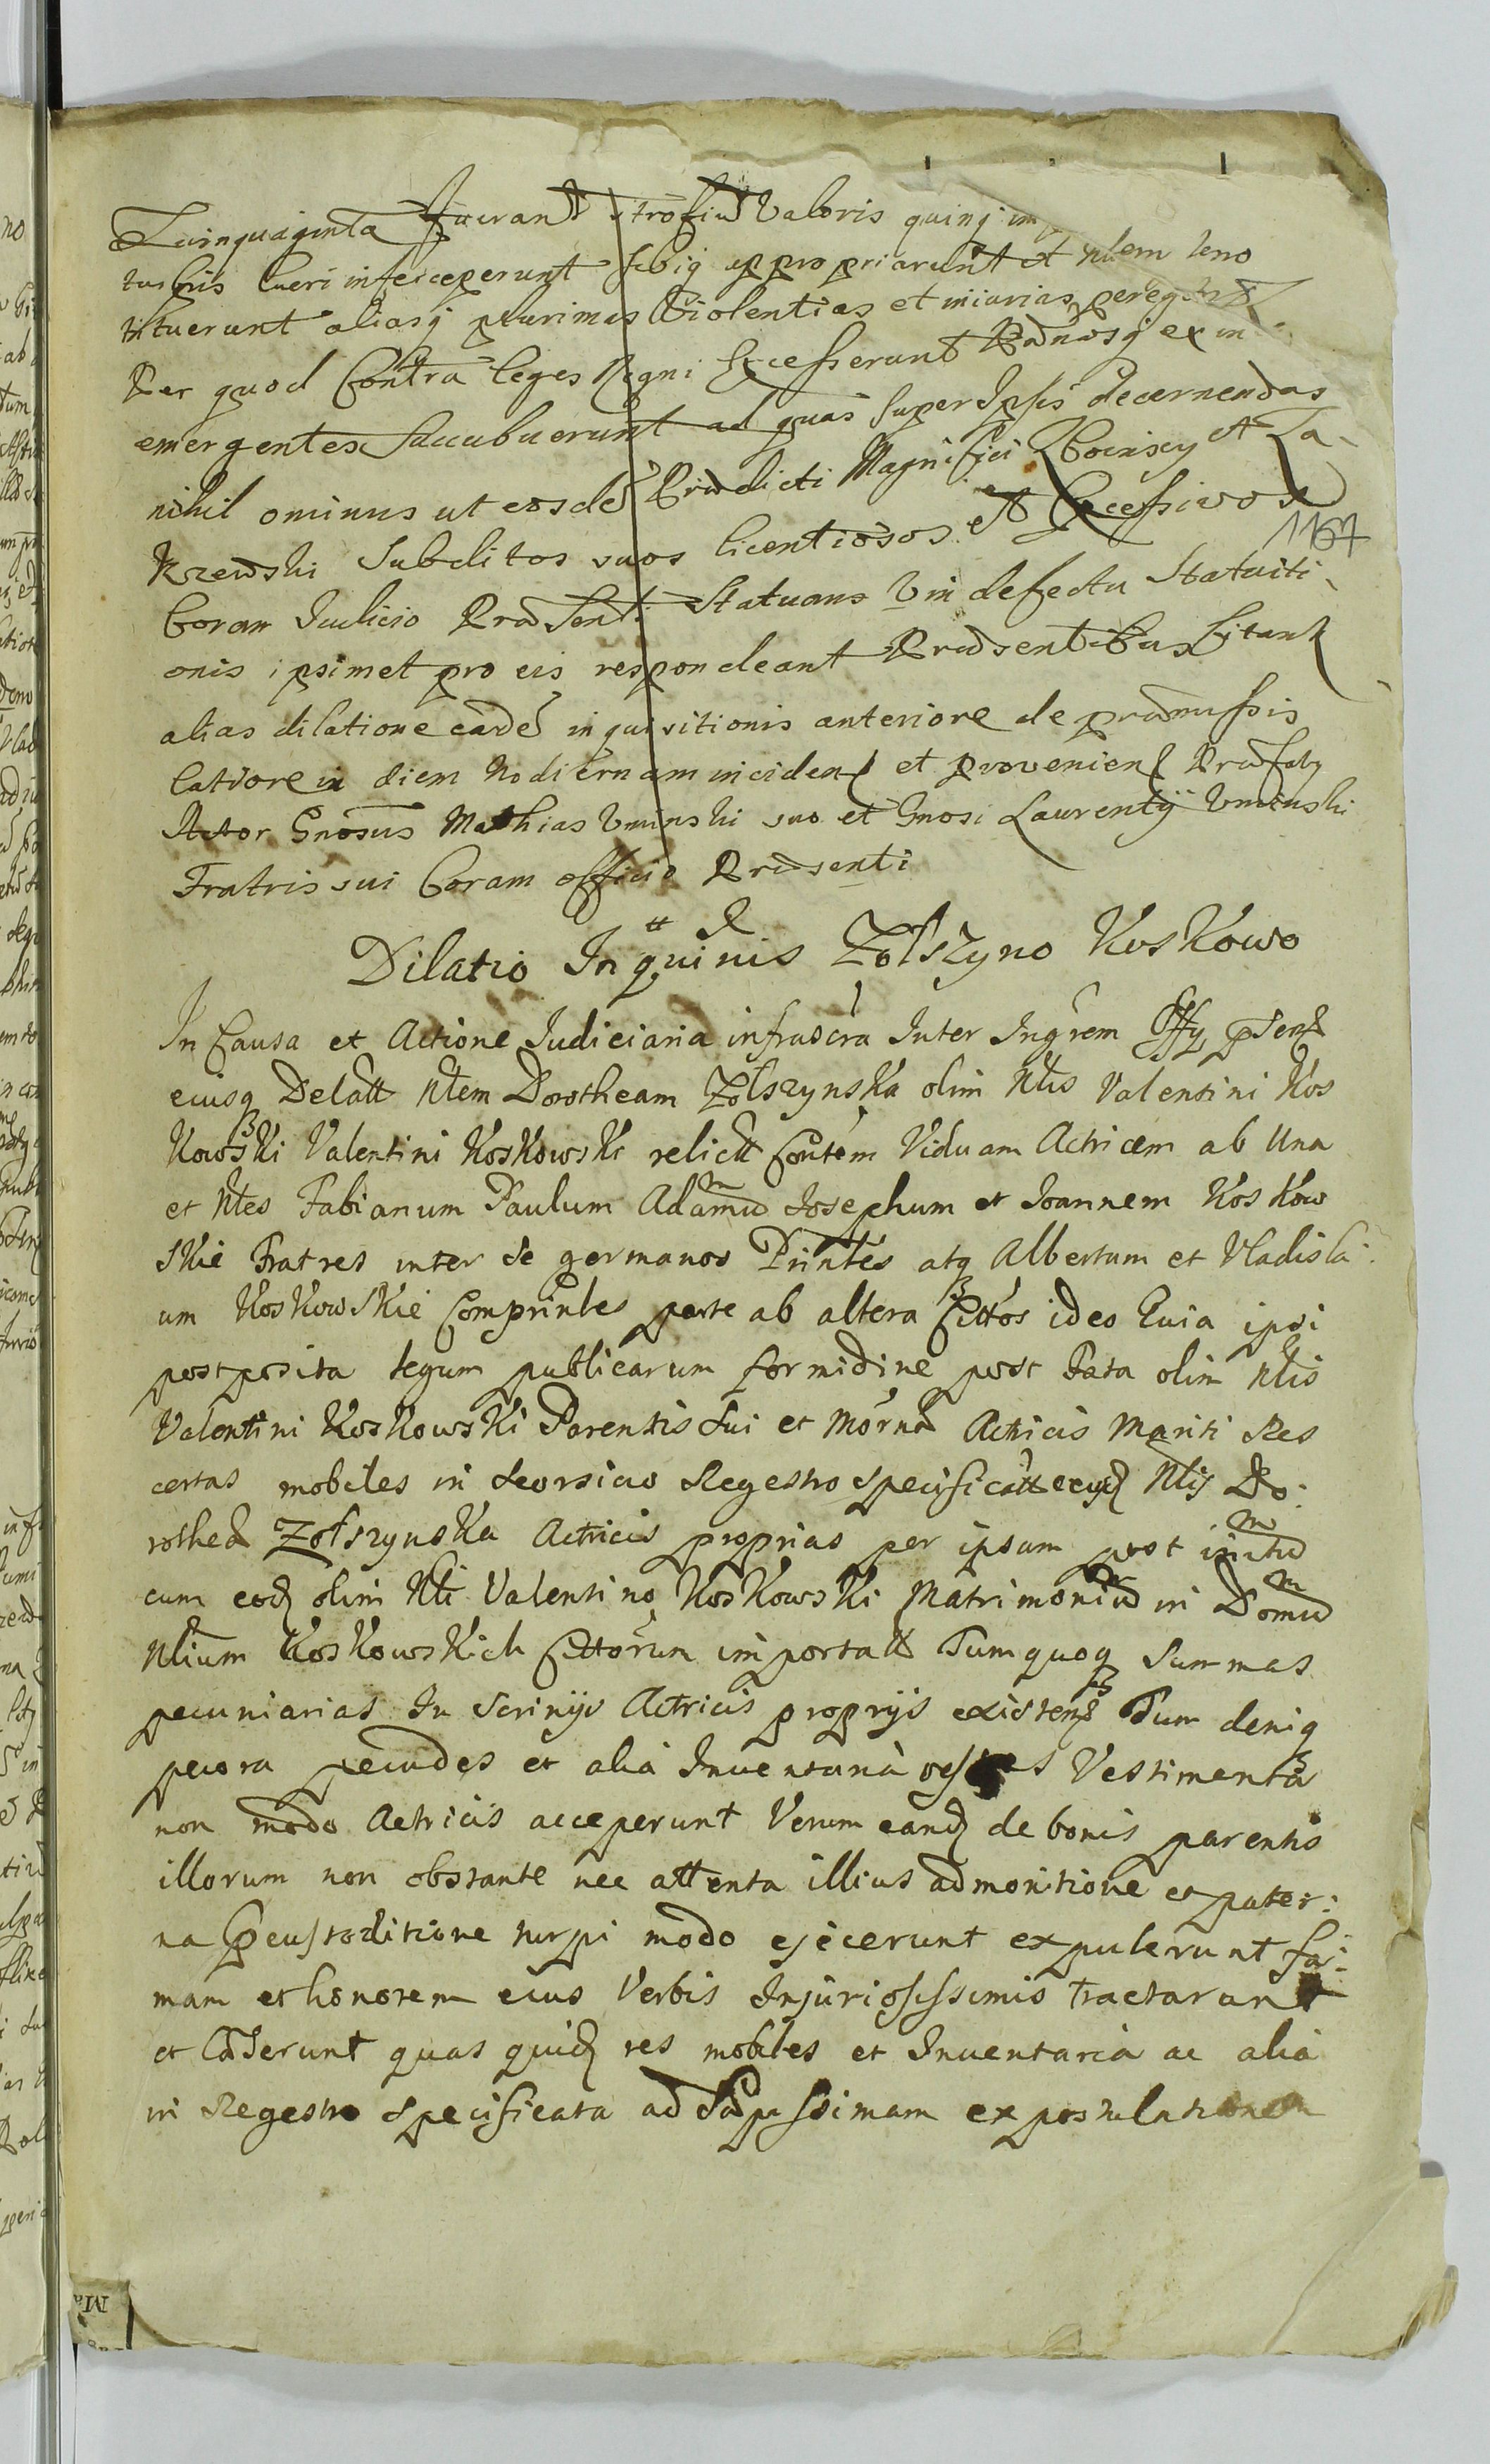 Quinquaginta valoris quinq
lucri infeiceperunt sibiq appropriarunt et
aliasq plurimas Violentias et iniurias
Per quod Contra leges Regni Excesserunt Paenasq ex in
emergentes succubuerunt ad quas super Ipsis decernendas
nihil ominus ut eosdē Praedicti Magnifici et Za-
Krzewski Subditos suos licentiosos et Excessivos
1167
Coram Iudicio Praesenti Statuans Vin defectu Statuiti
onis ipsimet pro eis respondeant Praesentibus Citant
alias dilatione eadē inquisitionis anteriore de praemissis
latiore in diem hodiernam inciden et provenien Praefaty
Actor Gnosus Mathias Uminski suo et Gnosi Laurentÿ Uminski
Fratris sui Coram officio Praesenti
Dilatio Inquinis Zołszyno Koskowo
In Causa et Actione Judiciaria infrascra Inter Ingrem Offy psent
eiusq Delatt Nlem Dorotheam Zołszynska olim Nlis Valentini Kos
kowski Valentini Koskowski relictt Contem Viduam Actricem ab Una
et Nles Fabianum Paulum Adamum Josephum et Joannem Koskow
skie Fratres inter se germanos Printes atq Albertum et Vladisla
um Koskowskie Comprintes parte ab altera Cittos ideo Quia ipsi
postposita legum publicarum formidine post Fata olim Nlis
Valentini Koskowski Parentis Sui et Actricis Mariti Res
certas mobiles in seorsivo Regestro specificatt Nlis Do:
rothea Zołszynska Actricis proprias per ipsam post initum
cum eod olim Nli Valentino Koskowski Matrimonium in Domum
Nlium Koskowskich Cittorum importatt Tum quoq Summas
pecuniarias In Scrinijs Actricis proprijs existens Tum deniq
pecora pecudes et alia Inventaria Vestimenta
non modo Actricis acceperunt Verum eand de bonis parentis
illorum non obstante nec attenta illius admonitione et pater:
na turpi modo ejecerunt expulerunt fa:
mam et honorem eius Verbis Injuriosissimis tractarunt
et laeserunt quas quid res mobiles et Inventaria ac alia
in Regestro specificata ad saepissimam expostulationem